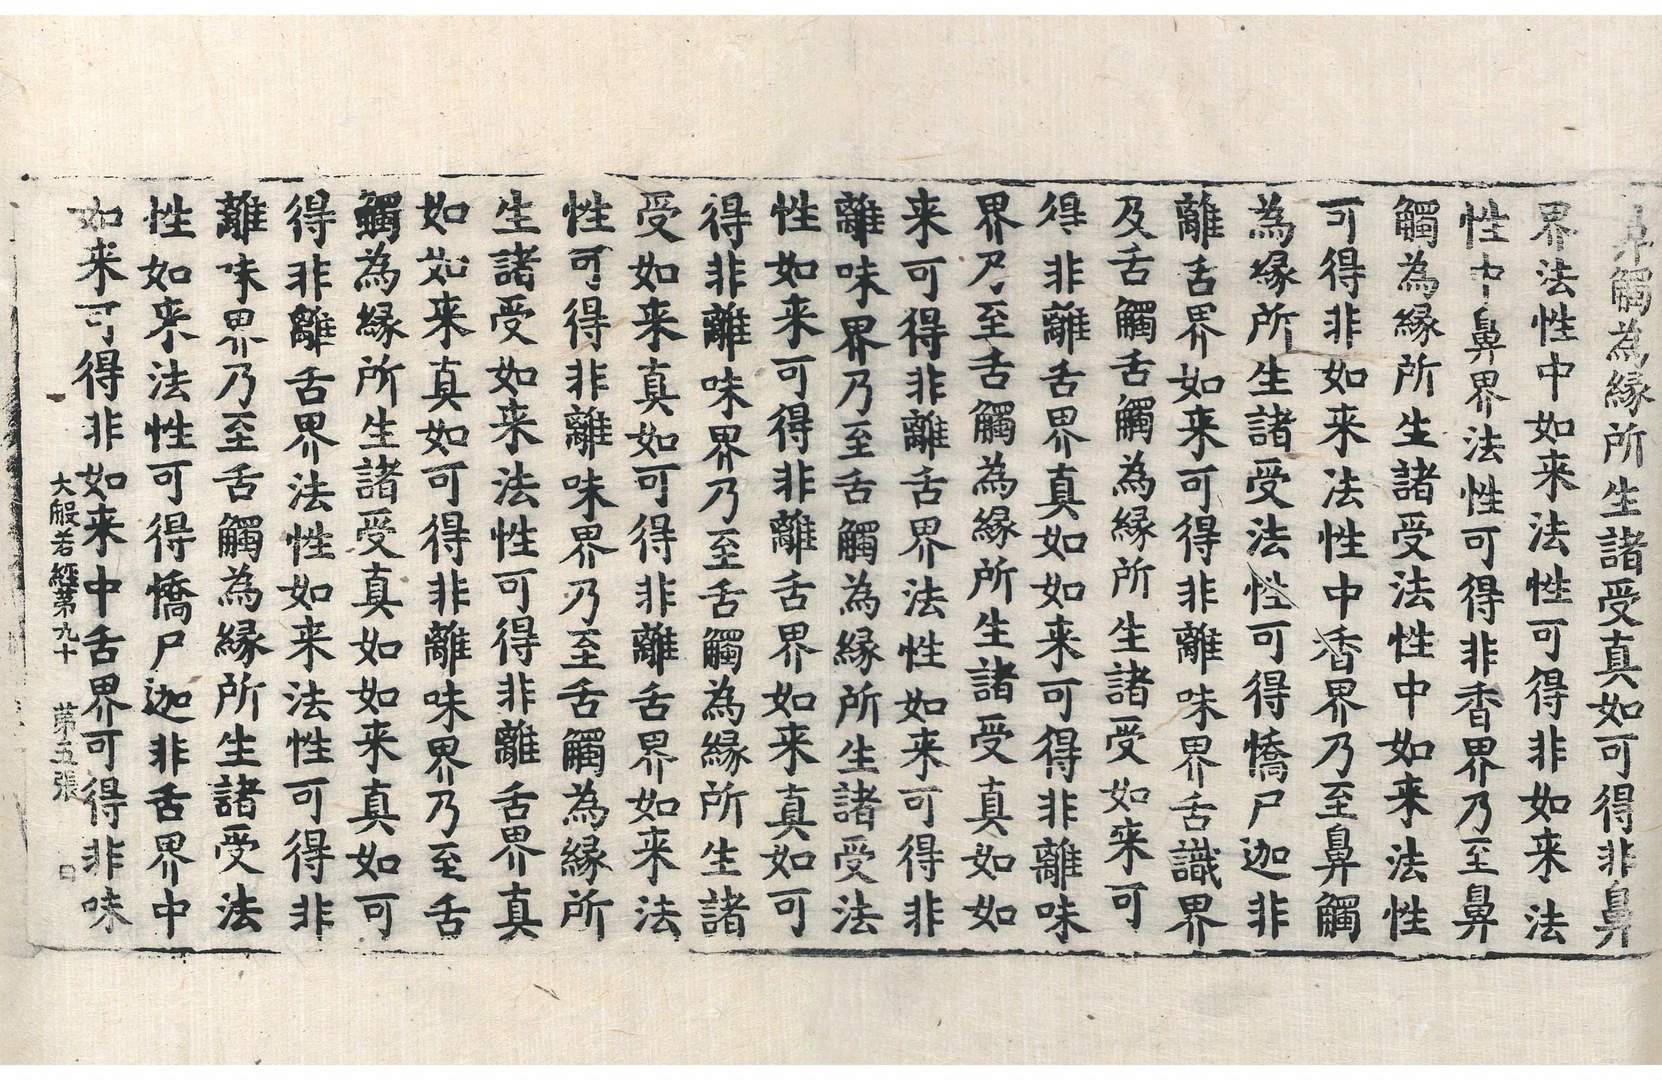 鼻觸為縁所生諸受真如可得非鼻
界法性中如来法性可得非如来法
性中鼻界法性可得非香界乃至鼻
觸為縁所生諸受法性中如来法性
可得非如来法性中香界乃至鼻觸
為縁所生諸受法性可得憍尸迦非
離舌界如来可得非離味界舌識界
及舌觸舌觸為縁所生諸受如来可
得非離舌界真如如来可得非離味
界乃至舌觸為縁所生諸受真如如
来可得非離舌界法性如来可得非
離味界乃至舌觸為縁所生諸受法
性如来可得非離舌界如来真如可
得非離味界乃至舌觸為縁所生諸
受如来真如可得非離舌界如来法
性可得非離味界乃至舌觸為縁所
生諸受如来法性可得非離舌界真
如如来真如可得非離味界乃至舌
觸為縁所生諸受真如如来真如可
得非離舌界法性如来法性可得非
離味界乃至舌觸為縁所生諸受法
性如来法性可得憍尸迦非舌界中
如来可得非如来中舌界可得非味
大般若經第九十 第五張 日